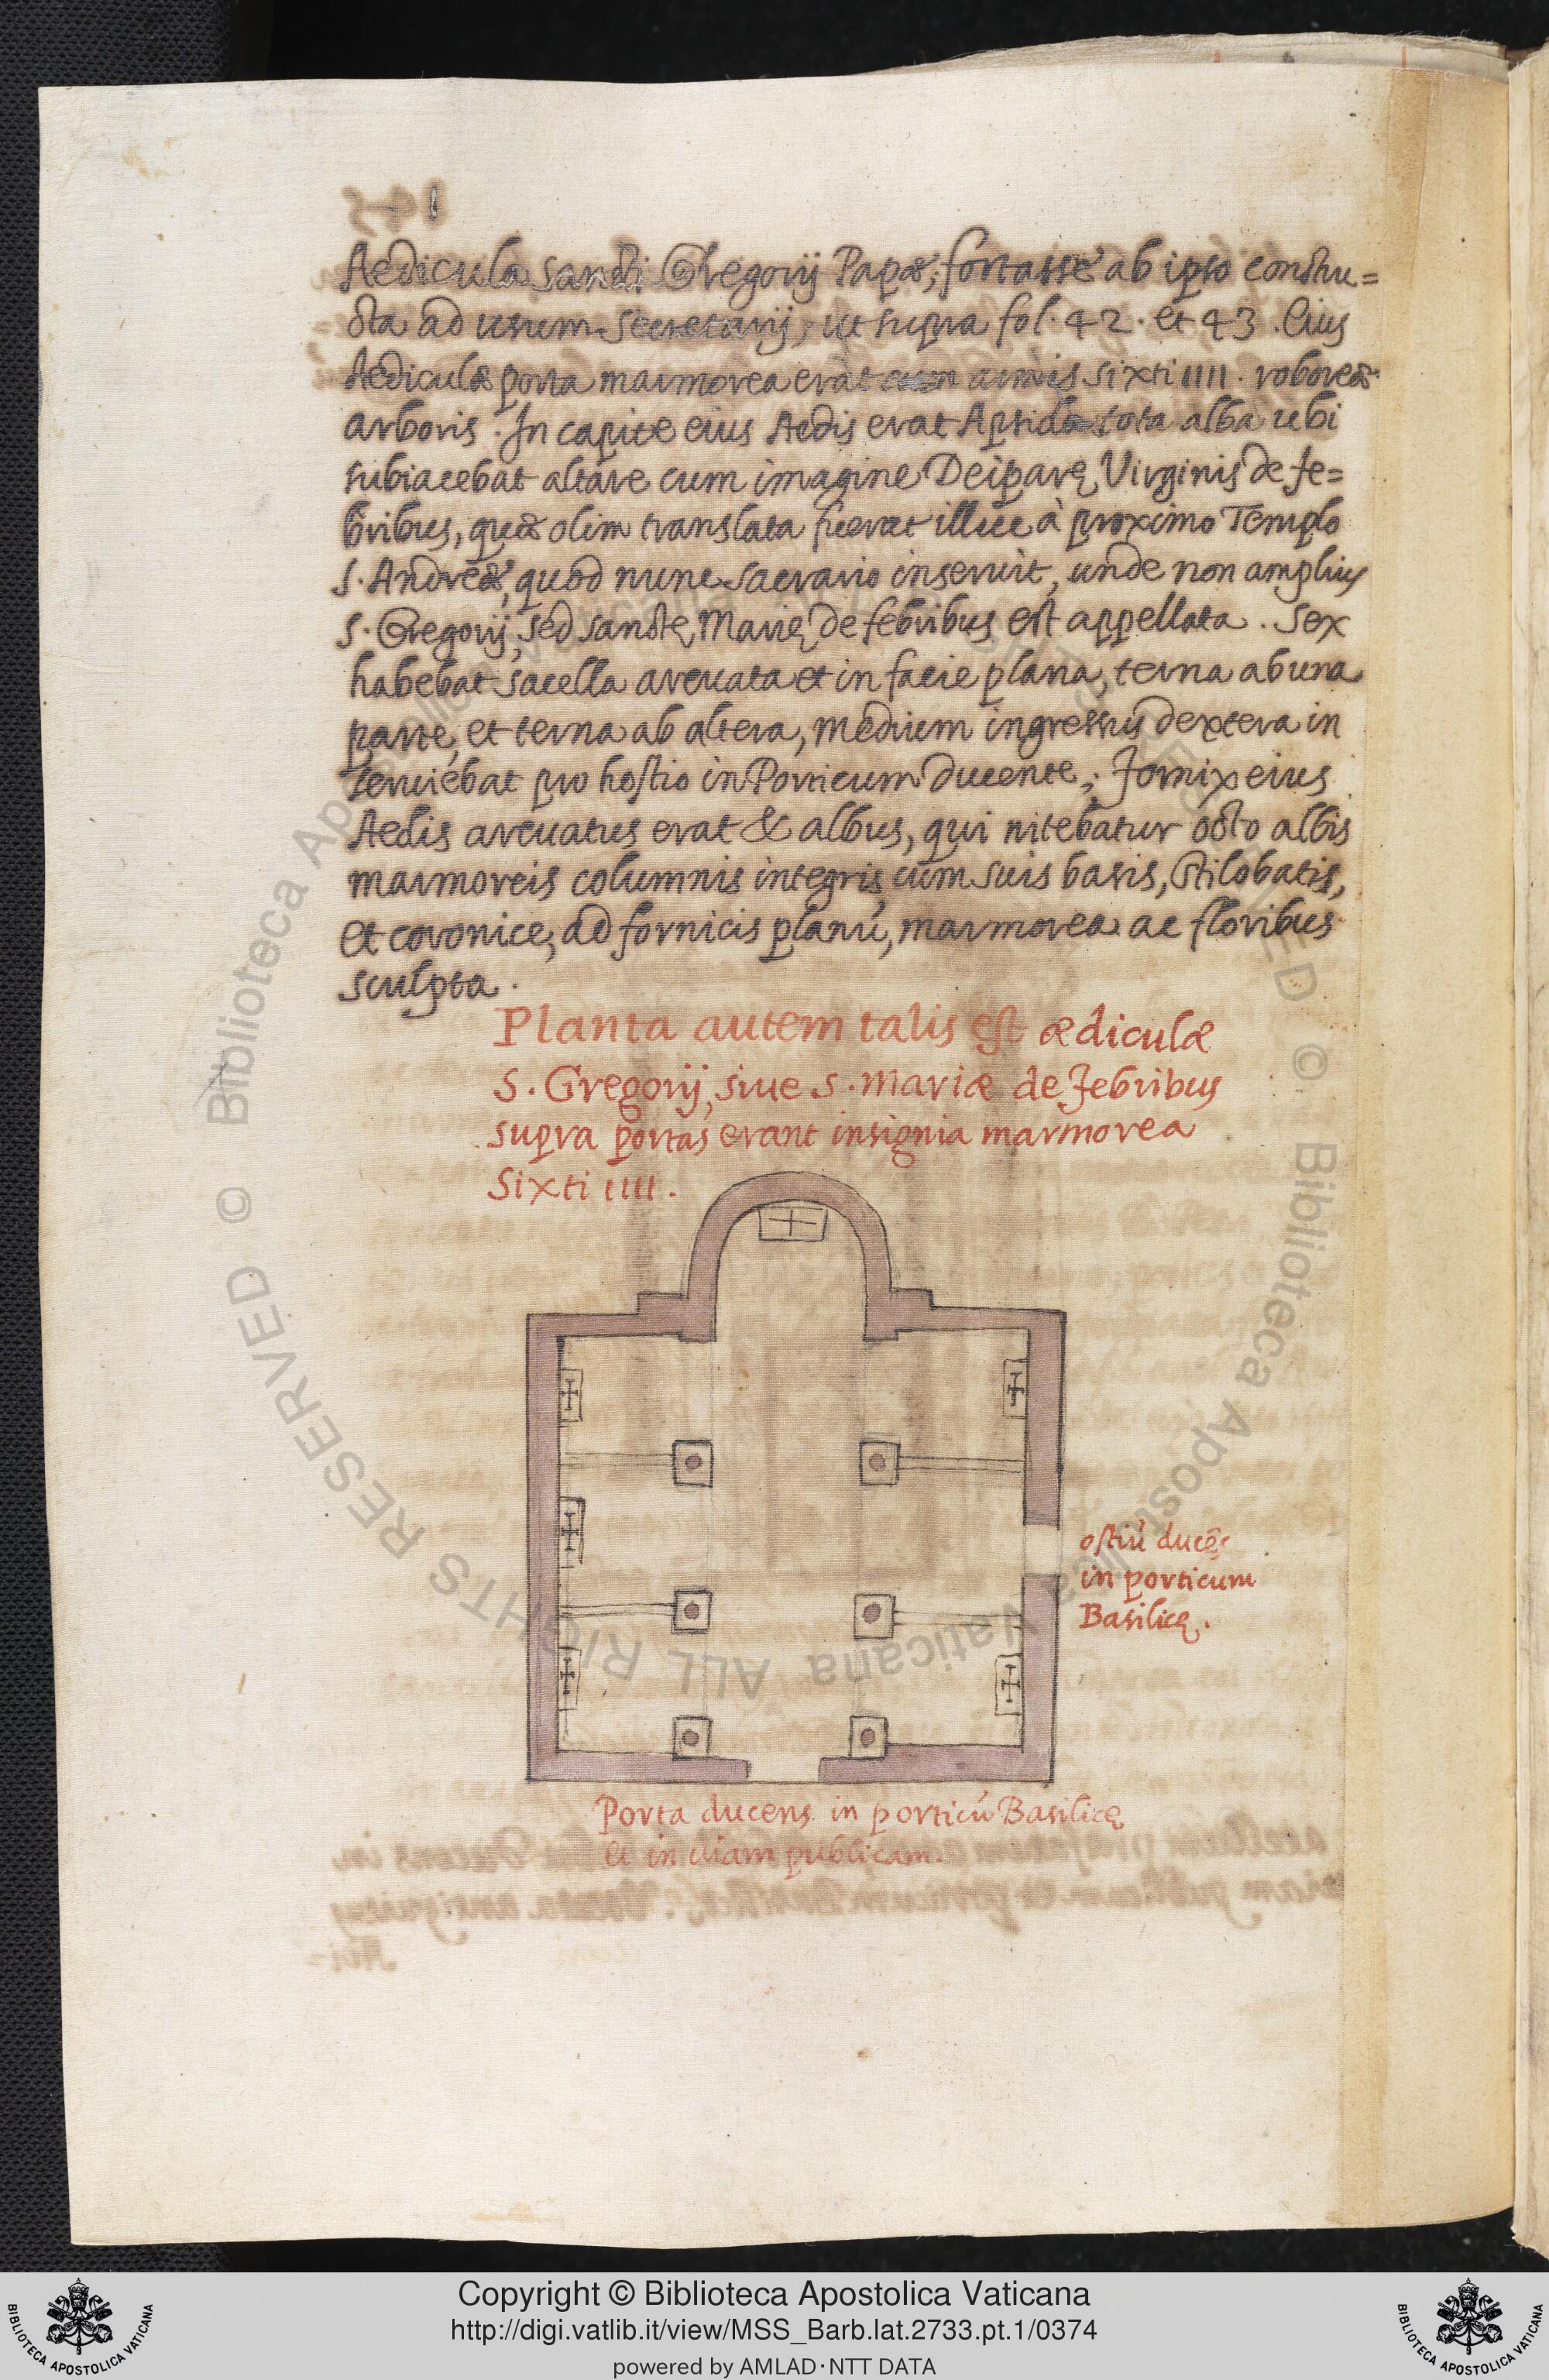 Aedicula sancti Gregorij Papæ, fortasse ab ipso constru=
cta ad usum Secretarij, ut supra fol. 42. et 43. Eius
Aediculæ porta marmorea erat cum armis Sixti IIII. roboreæ
arboris. In capite eius Aedis erat Apsida tota alba ubi
subiacebat altare cum imagine Deiparę Virginis de fe=
bribus, quæ olim translata fuerat illuc à proximo Templo
S. Andreæ, quod nunc sacrario inseruit, unde non amplius
S. Gregorij, sed sanctę Marię de febribus est appellata. Sex
habebat sacella arcuata et in facie plana, terna ab una
parte, et terna ab altera, medium ingressus dextera in
seruiebat pro hostio in Porticum ducente; Fornix eius
Aedis arcuatus erat & albus, qui nitebatur octo albis
marmoreis columnis integris cum suis basis, stilobatis,
et coronice, ad fornicis planú, marmorea ac floribus
sculpta.
Planta autem talis est ædiculæ
S. Gregorij, siue S. Mariæ de Febribus
supra portas erant insignia marmorea
Sixti IIII.
ostiú ducẽs
in porticum
Basilicę.
Porta ducens in porticú Basilicę
et in uiam publicam.
Copyright © Biblioteca Apostolica Vaticana
http://digi.vatlib.it/view/MSS_Barb.lat.2733.pt.1/0374
powered by AMLAD·NTT DATA
BIBLIOTECA APOSTOLICA VATICANA
BIBLIOTECA APOSTOLICA VATICANA
© Biblioteca Apostolica Vaticana ALL RIGHTS RESERVED © Biblioteca Apostolica Vaticana ALL RIGHTS RESERVED